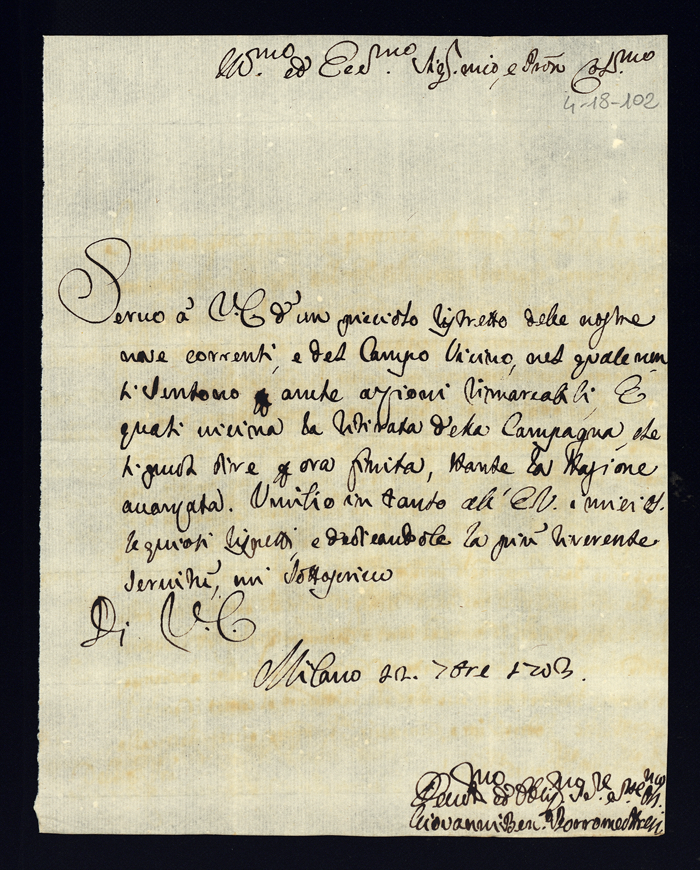 Ill.mo ed Ecc.mo Sig.r mio, e Pron Col.mo
4-18-102
Seruo à V.E. d'un picciolo ristretto delle nostre
noue correnti, e del Campo Vicino, nel quale non
si sentono anche azzioni rimarcabili. È
quasi uicina la ritirata della Campagna, che
si può dire p ora finita, stante la stagione
auanzata. Vmilio in tanto all' E.V. i miei
ossequiosi rispetti, e dedicandole la più riuerente
seruitù, mi sottoscriuo
Di V.E.
Milano 12. 7bre 1703.
Deuot.mo ed Oblig.mo Se.re
Giovanni Ben. Borromeo Aresi